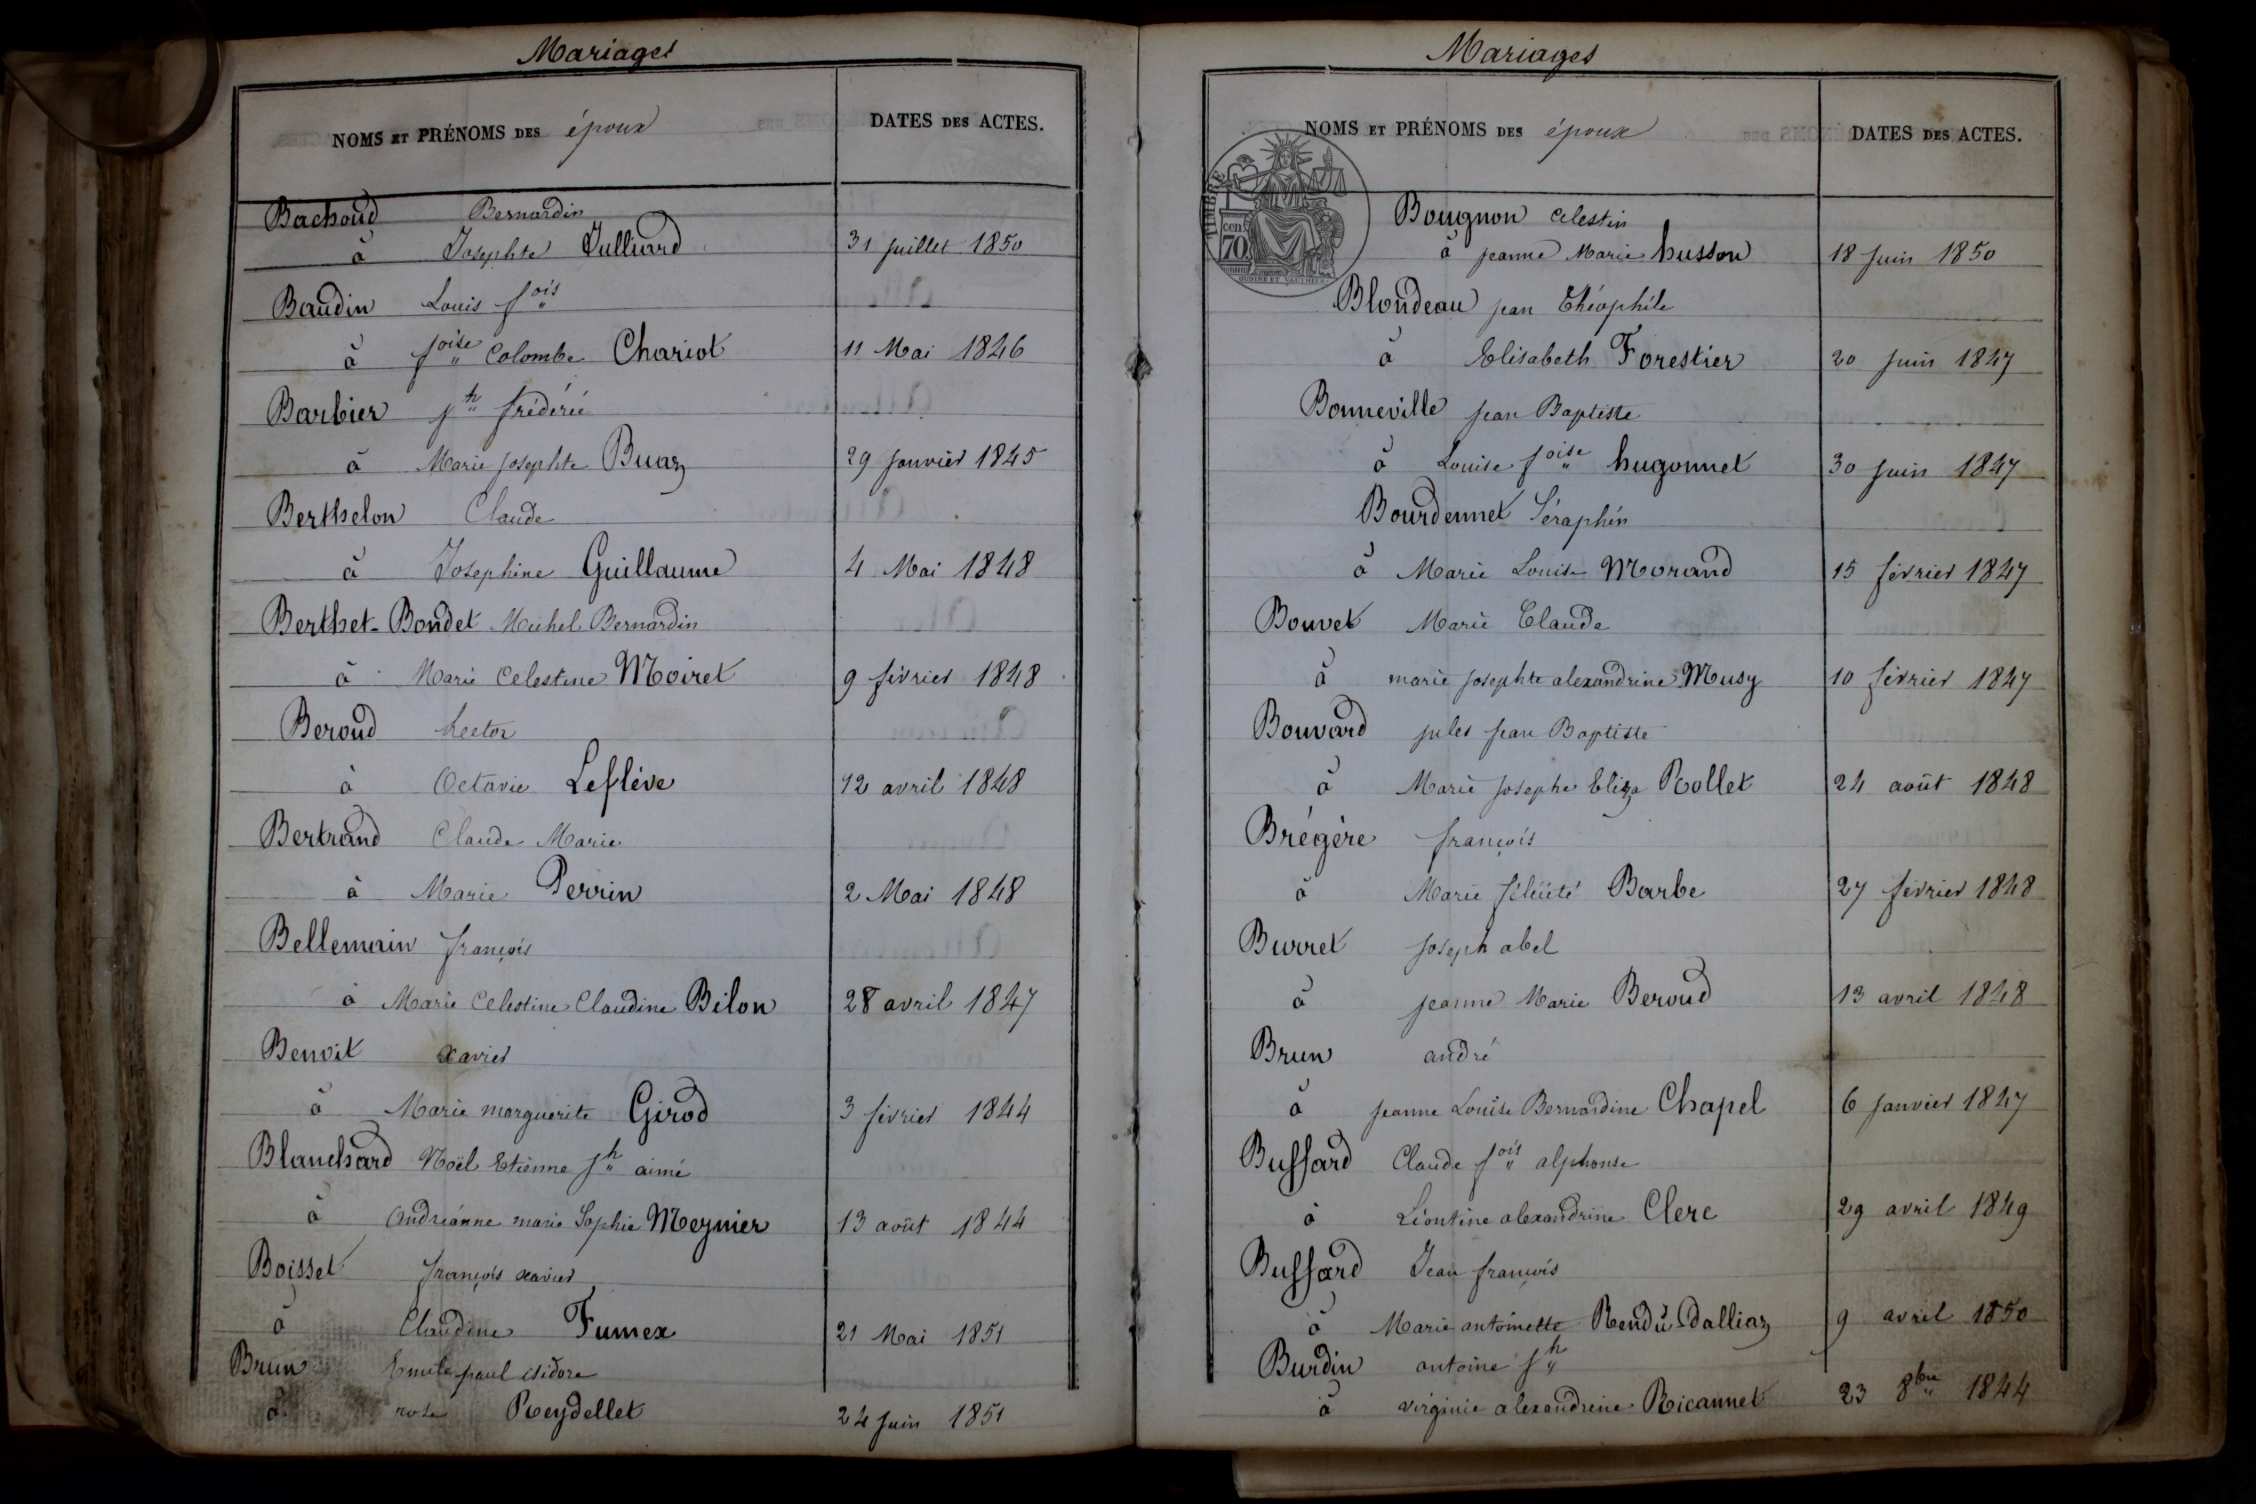 Mariages
NOMS ET PRÉNOMS DES époux
DATES DES ACTES.
Bachoud Bernardin
à Josephte Julliard 31 juillet 1850
Baudin Louis fois
à foise Colombe Chariot 11 Mai 1846
Barbier jh fréderic
à Marie josephte Buaz 29 janvier 1845
Berthelon Claude
à Josephine Guillaume 4 Mai 1848
Berthet-Bondet Michel Bernardin
à Marie Celestine Moiret 9 février 1848
Beroud hector
à Octavie Leflève 12 avril 1848
Bertrand Claude Marie
à Marie Perrin 2 Mai 1848
Bellemain françois
à Marie Celestine Claudine Bilon 28 avril 1847
Benoit xavier
à Marie marguerite Girod 3 février 1844
Blanchard Noël Etienne jh aimé
à andréanne marie Sophie Meynier 13 août 1844
Boisset françois xavier
à Claudine Fumex 21 Mai 1851
Brun Emile paul isidore
à rose Reydellet 24 juin 1851
Mariages
NOMS ET PRÉNOMS DES époux
DATES DES ACTES.
TIMBRE
70
Bougnon celestin
à jeanne Marie husson 18 juin 1850
Blondeau jean Théophile
à Elisabeth Forestier 20 juin 1847
Bonneville jean Baptiste
à Louise foise hugonnet 30 juin 1847
Bourdennet Séraphin
à Marie Louise Morand 15 février 1847
Bouvet Marie Claude
à marie josephte alexandrine Musy 10 février 1847
Bouvard jules jean Baptiste
à Marie josephe Eliza Rollet 24 août 1848
Brégère françois
à Marie félicité Barbe 27 février 1848
Burret joseph abel
à jeanne Marie Beroud 13 avril 1848
Brun andré
à jeanne Louise Bernardine Chapel 6 janvier 1847
Buffard Claude fois alphonse
à Léontine alexandrine Clerc 29 avril 1849
Buffard Jean françois
à Marie antoinette Rendu Dalliaz 9 avril 1850
Burdin antoine jh
à virginie alexandrine Ricannet 23 8bre 1844